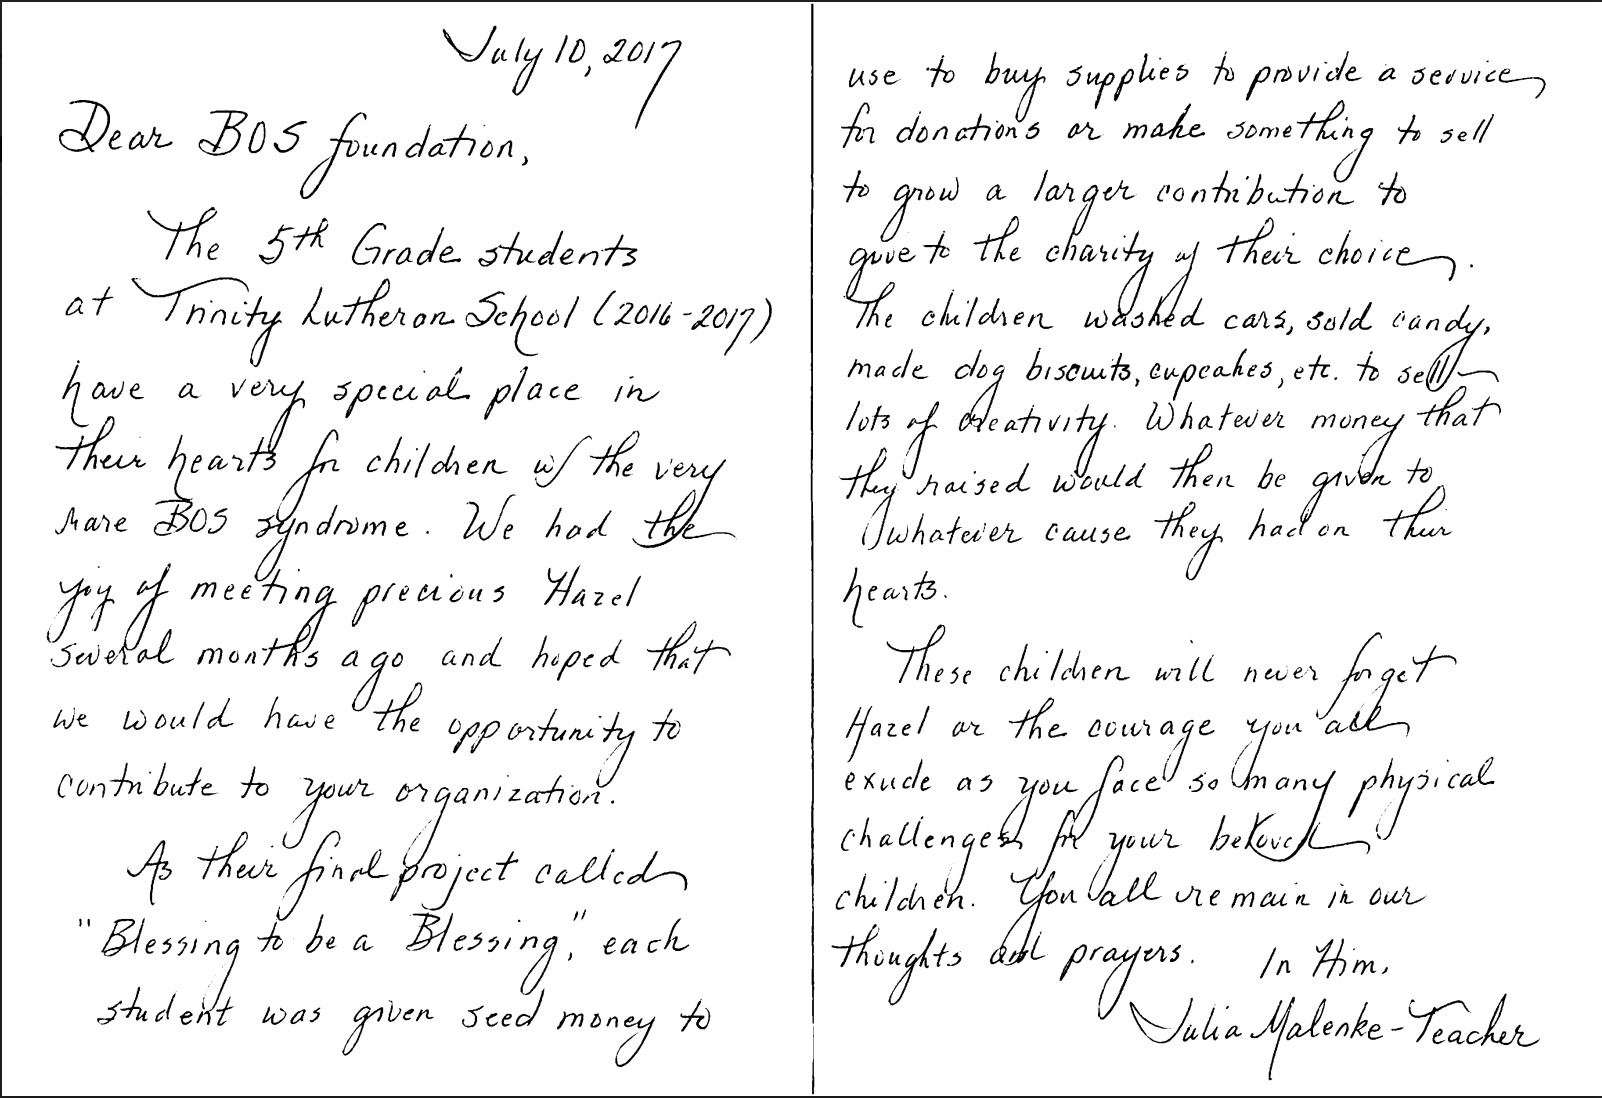 July 10, 2017
Dear BOS foundation,
The 5th Grade students
at Trinity Lutheran School (2016-2017)
have a very special place in
their hearts for children w/ the very
rare BOS syndrome. We had the
joy of meeting precious Hazel
several months ago and hoped that
we would have the opportunity to
contribute to your organization.
As their final project called
"Blessing to be a Blessing," each
student was given seed money to
use to buy supplies to provide a service
for donations or make something to sell
to grow a larger contribution to
give to the charity of their choice.
The children washed cars, sold candy,
made dog biscuits, cupcakes, etc. to sell
lots of creativity. Whatever money that
they raised would then be given to
whatever cause they had on their
hearts.
These children will never forget
Hazel or the courage you all
exude as you face so many physical
challenges for your beloved
children. You all remain in our
thoughts and prayers. In Him,
Julia Malenke - Teacher